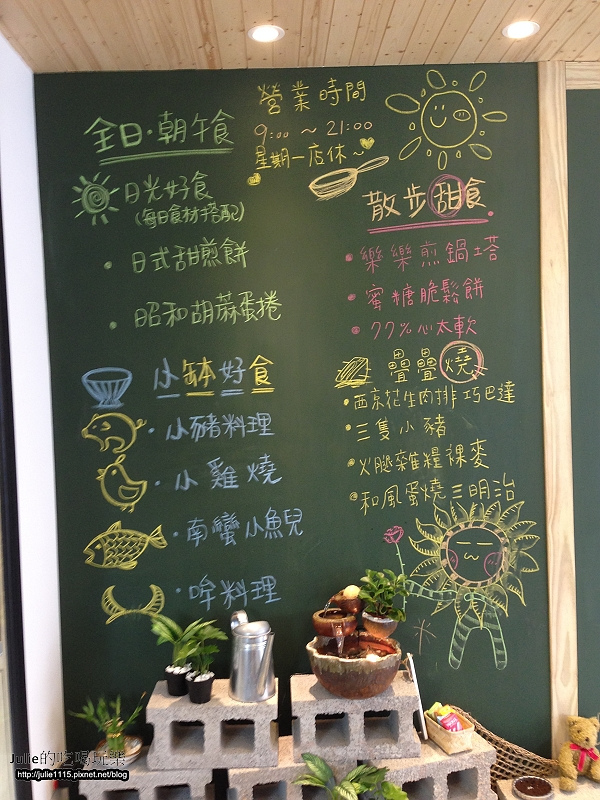 營業時間
9:00 ~ 21:00
星期一店休~
全日·朝午食
日光好食
(每日食材搭配)
· 日式甜煎餅
· 昭和胡蔴蛋捲
小缽好食
· 小豬料理
· 小雞燒
· 南蠻小魚兒
· 哞料理
散步甜食
· 樂樂煎鍋塔
· 蜜糖脆鬆餅
· 77%心太軟
疊疊燒
· 西京花生肉排巧巴達
· 三隻小豬
· 火腿雜糧裸麥
· 和風蛋燒三明治
Julie的吃喝玩樂
http://julie1115.pixnet.net/blog